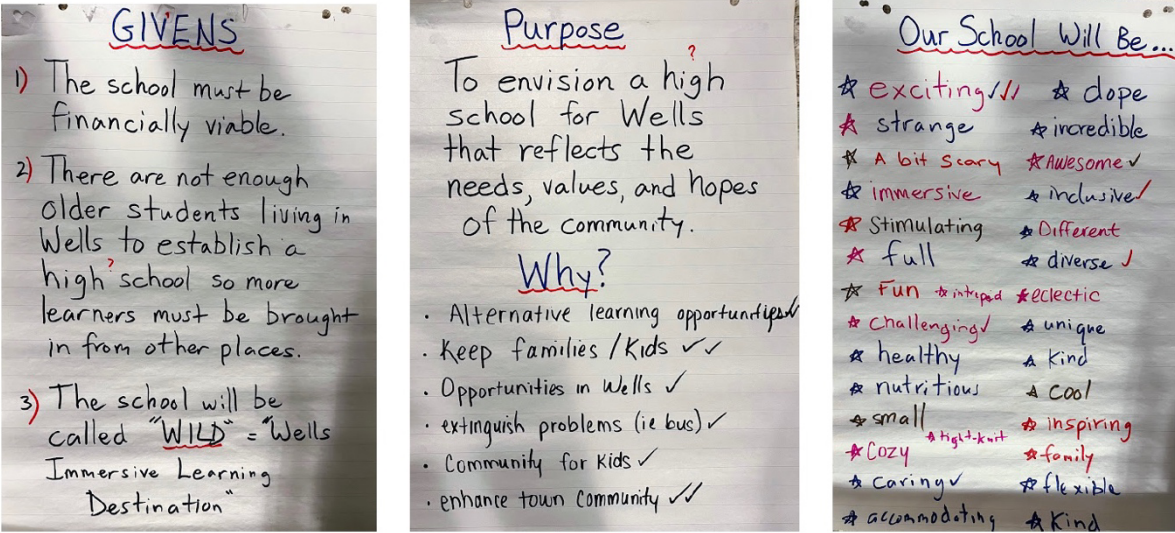 GIVENS
1) The school must be
financially viable.
2) There are not enough
older students living in
Wells to establish a
high? school so more
learners must be brought
in from other places.
3) The school will be
called "WILD" = "Wells
Immersive Learning
Destination"
Purpose
?
To envision a high
school for Wells
that reflects the
needs, values, and hopes
of the community.
Why?
· Alternative learning opportunities ✓
· Keep families / Kids ✓✓
· Opportunities in Wells ✓
· extinguish problems (ie bus) ✓
· Community for Kids ✓
· enhance town Community ✓✓
Our School Will Be...
☆ exciting ✓✓✓
☆ strange
☆ A bit Scary
☆ immersive
☆ Stimulating
☆ full
☆ Fun ☆ intrepid
☆ Challenging ✓
☆ healthy
☆ nutritious
☆ small
☆ tight-knit
☆ Cozy
☆ Caring ✓
☆ accommodating
☆ dope
☆ incredible
☆ Awesome ✓
☆ inclusive ✓
☆ Different
☆ diverse ✓
☆ eclectic
☆ unique
☆ Kind
☆ Cool
☆ inspiring
☆ family
☆ flexible
☆ Kind